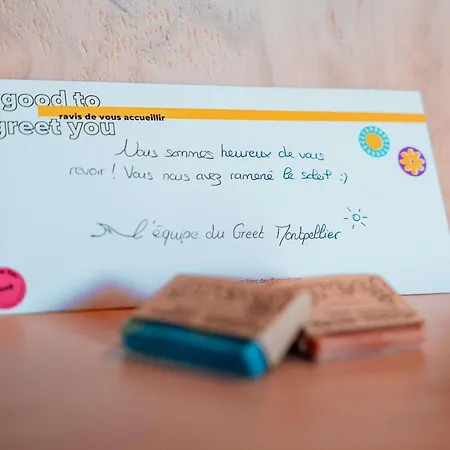 good to
ravis de vous accueillir
greet you
Nous sommes heureux de vous
revoir ! Vous nous avez ramené le soleil :)
L'équipe du Greet Montpellier